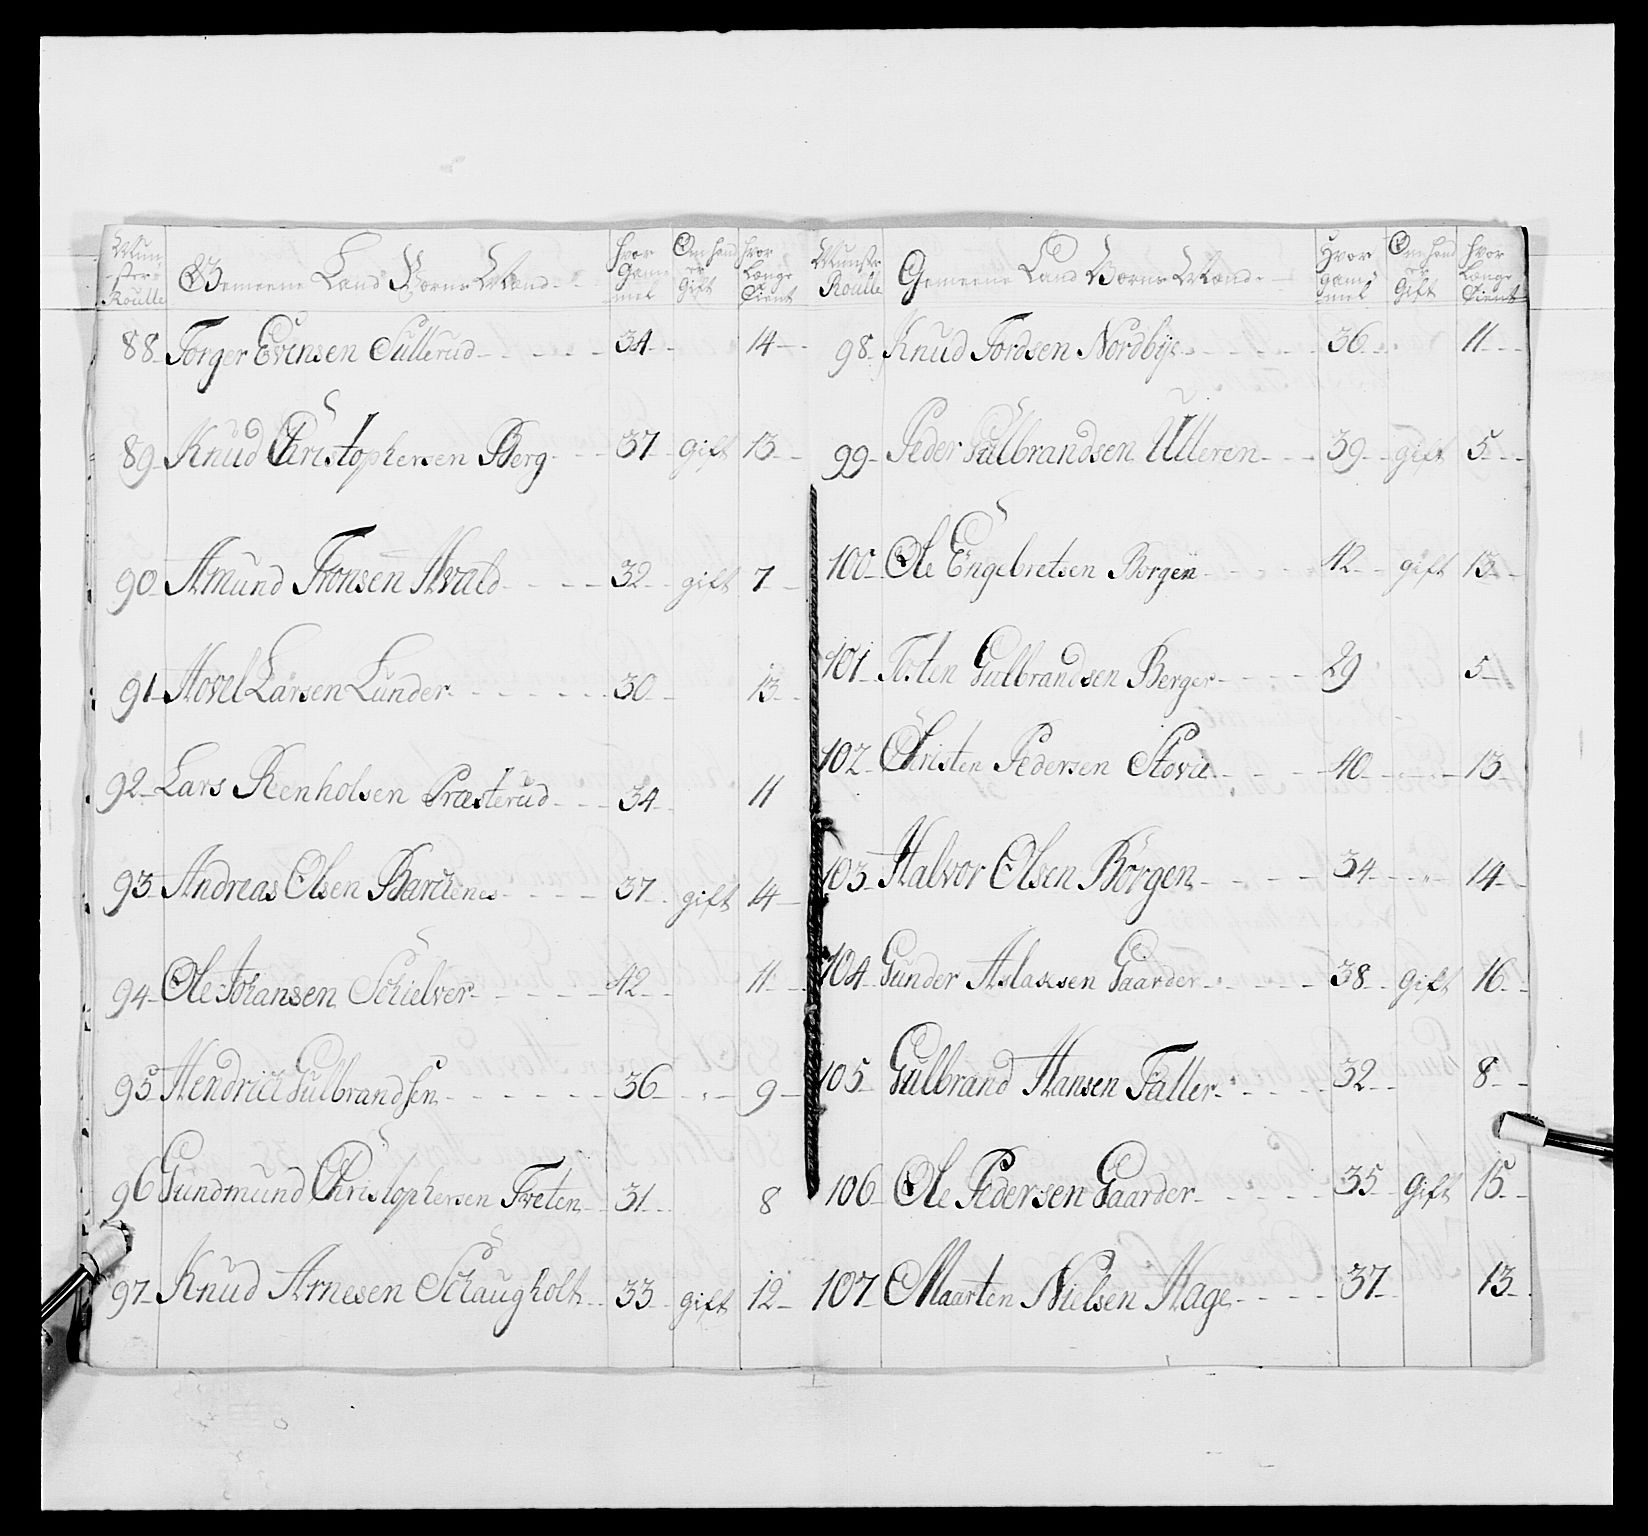 Mun-
ster-
Roulle
Gemeene Land Værns Mand
Hvor
Gam-
mel
Om hand
er
Gift
hvor
Længe
Tient
88 Torger Evensen Sullerud 34 14
89 Knud Christophersen Berg 37 gift 13
90 Amund Tronsen Hvald 32 gift 7
91 Hovel Larsen Lunder 30 13
92 Lars Reenholsen Præsterud 34 11
93 Andreas Olsen Barchenes 37 gift 14
94 Ole Johansen Schielver 42 11
95 Hendrich Gulbrandsen 36 9
96 Gundmund Christophersen Treten 31 8
97 Knud Arnesen Schaugholt 33 gift 12
Munster
Roulle
Gemeene LandVærns Mand
Hvor
gam-
mel
Om hand
er
Gift
hvor
Længe
Tient
98 Knud Tordsen Nordbye 36 11
99 Peder Gulbrandsen Ulleren 39 gift 5
100 Ole Engebretsen Borgen 42 gift 13
101 Tosten Gulbrandsen Berger 29 5
102 Christen Pedersen Stovu 40 13
103 Halvor Olsen Börgen 34 14
104 Gunder Aslaksen Gaarder 38 Gift 16
105 Gulbrand Hansen Faller 32 8
106 Ole Pedersen Gaarder 35 Gift 15
107 Maarten Nielsen Hage 37 13